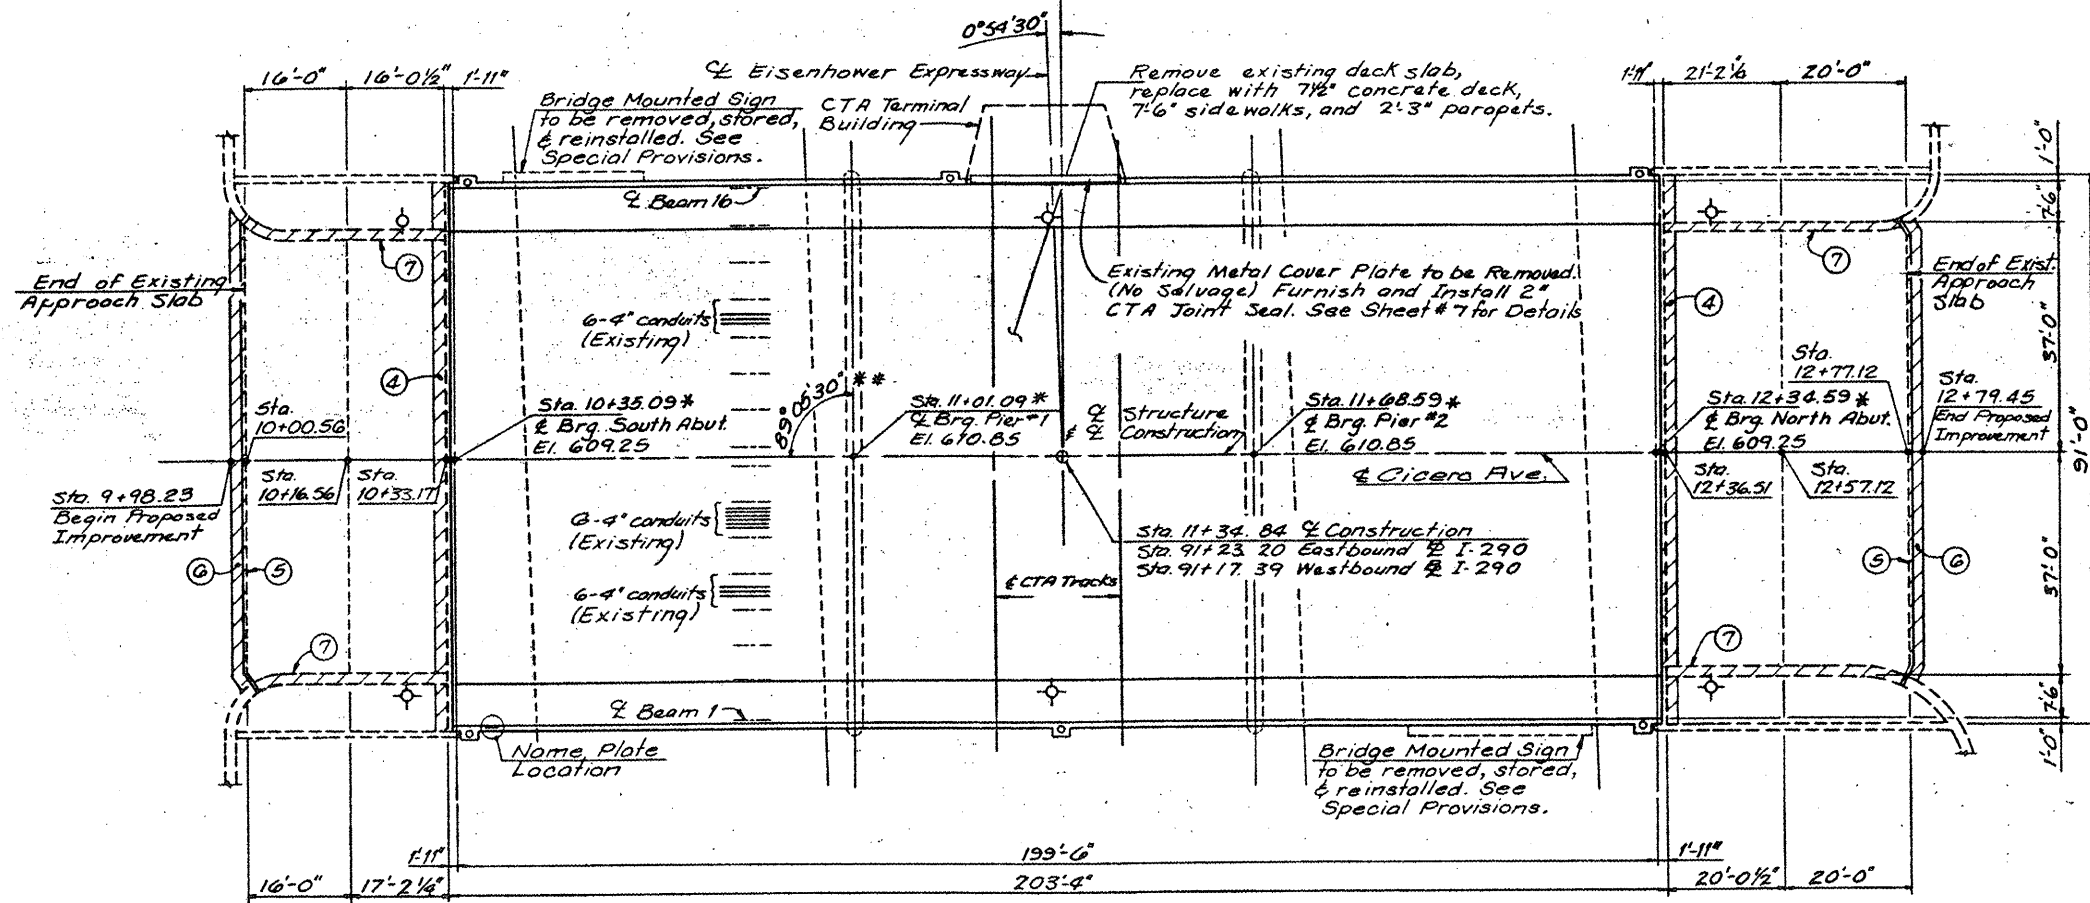 0°54'30"
16'-0" 16'-0½" 1'-11"
℄ Eisenhower Expressway
Remove existing deck slab,
replace with 7½" concrete deck,
7'-6" sidewalks, and 2'-3" parapets.
1'-11" 21'-2⅛ 20'-0"
Bridge Mounted Sign
to be removed, stored,
& reinstalled. See
Special Provisions.
CTA Terminal
Building
1'-0"
7'-6"
37'-0"
91'-0"
37'-0"
7'-6"
1'-0"
℄ Beam 16
7
7
End of Existing
Approach Slab
Existing Metal Cover Plate to be Removed.
(No Salvage) Furnish and Install 2"
CTA Joint Seal. See Sheet #7 for Details
End of Exist.
Approach
Slab
6-4" conduits
(Existing)
4
4
89°05'30" **
Sta.
10+00.56
Sta. 10+35.09*
℄ Brg. South Abut.
El. 609.25
Sta. 11+01.09*
℄ Brg. Pier #1
El. 610.85
℄ Structure
& ℄ Construction
Sta. 11+68.59*
℄ Brg. Pier #2
El. 610.85
Sta.
12+77.12
Sta. 12+34.59*
℄ Brg. North Abut.
El. 609.25
Sta.
12+79.45
End Proposed
Improvement
Sta. 9+98.23
Begin Proposed
Improvement
Sta.
10+16.56
Sta.
10+33.17
℄ Cicero Ave.
Sta.
12+36.51
Sta.
12+57.12
6-4" conduits
(Existing)
Sta. 11+34.84 ℄ Construction
Sta. 91+23.20 Eastbound ℄ I-290
Sta. 91+17.39 Westbound ℄ I-290
6
5
5
6
6-4" conduits
(Existing)
℄ CTA Tracks
7
7
℄ Beam 1
Name Plate
Location
Bridge Mounted Sign
to be removed, stored,
& reinstalled. See
Special Provisions.
1'-11" 199'-6" 1'-11"
16'-0" 17'-2¼" 203'-4" 20'-0½" 20'-0"